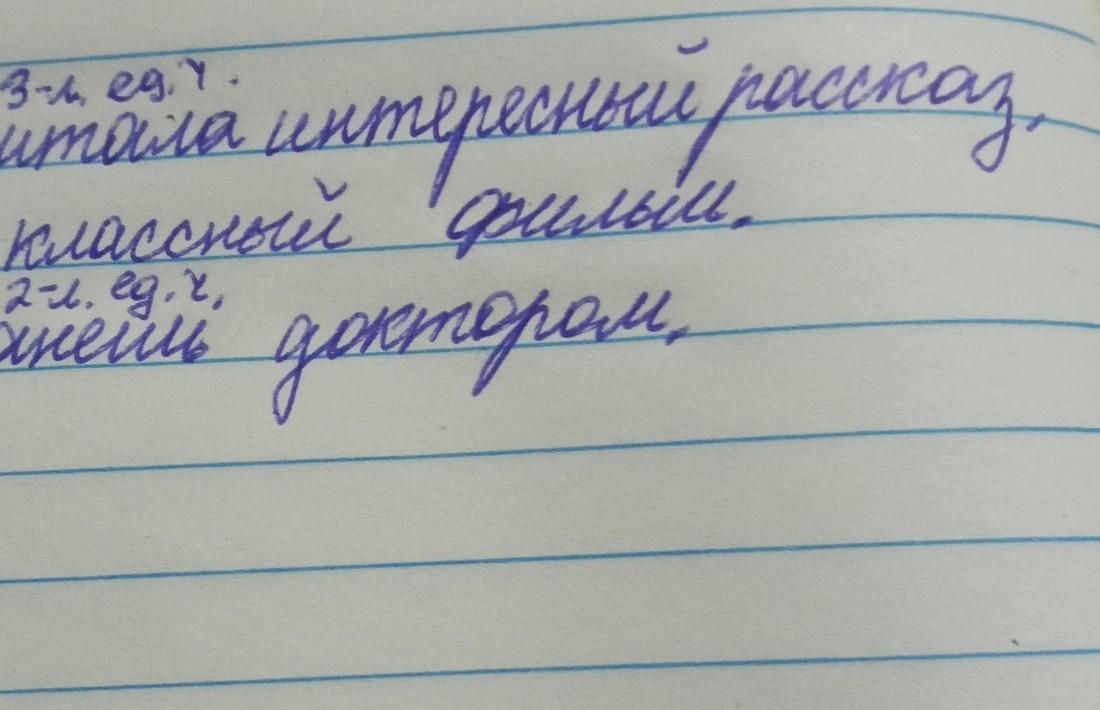 3-л. ед. ч.
итала интересный рассказ.
классный фильм.
2-л. ед. ч.
анешь доктором.